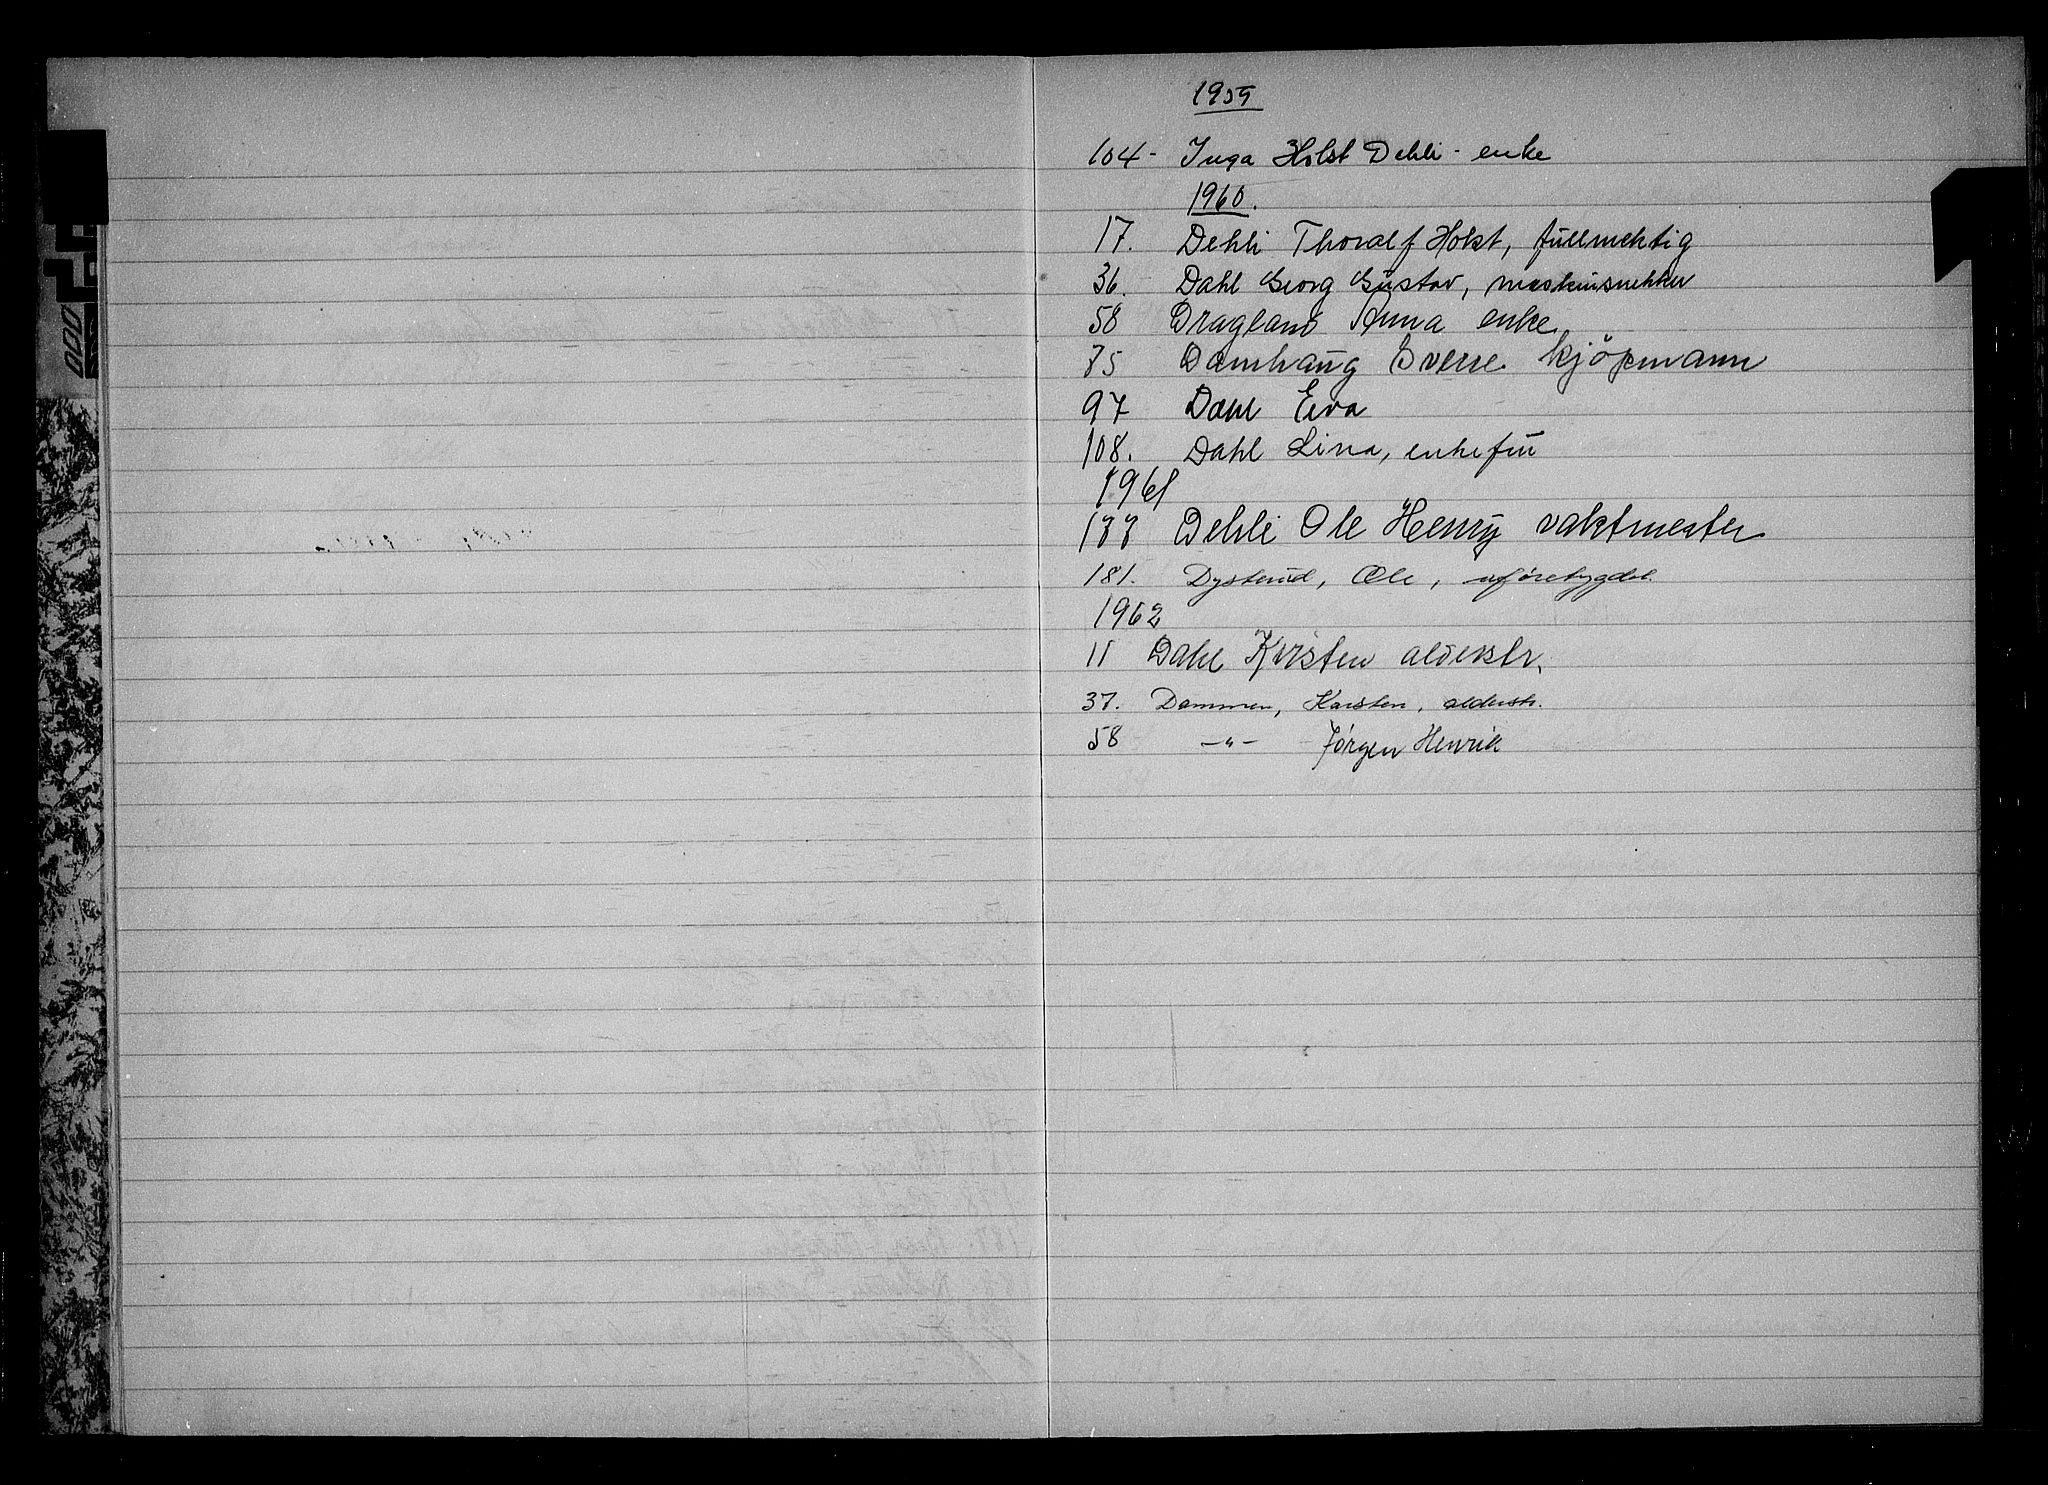 1959
104 - Inga Holst Dehli - enke
1960.
17. Dehli Thoralf Holst, fullmektig
36. Dahl Georg Gustav, maskinsnekker
58 Dragland Anna enke
75 Damhaug Sverre kjöpmann
97 Dahl Eva
108. Dahl Lina, enkefru
1961
177 Dehli Ole Henry vaktmester
181. Dysterud, Ole, uføretrygdet.
1962
11 Dahl Kirsten alderstr.
37. Dammen, Karsten, alderstr.
58 -"- Jørgen Henrik